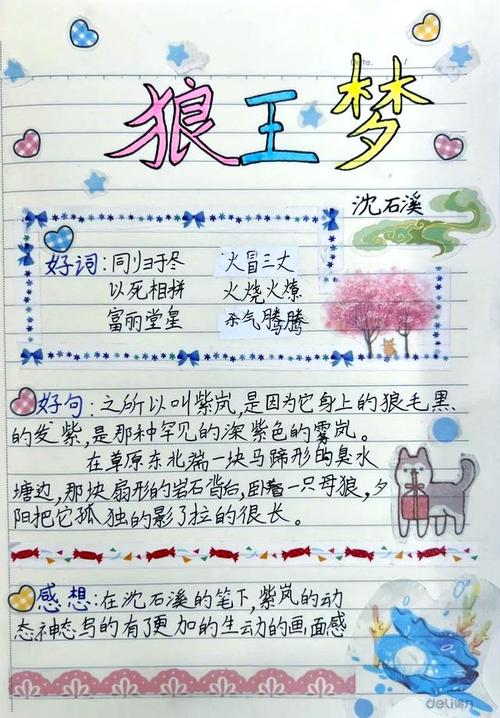 Date. /
狼王梦
沈石溪
好词:同归于尽 火冒三丈
以死相拼 火烧火燎
富丽堂皇 杀气腾腾
好句:之所以叫紫岚,是因为它身上的狼毛黑
的发紫,是那种罕见的深紫色的雾岚。
在草原东北端一块马蹄形的臭水
塘边,那块扇形的岩石背后,卧着一只母狼,夕
阳把它孤独的影了拉的很长。
感想:在沈石溪的笔下,紫岚的动
态神态鸟的有了更加的生动的画面感
deli得力